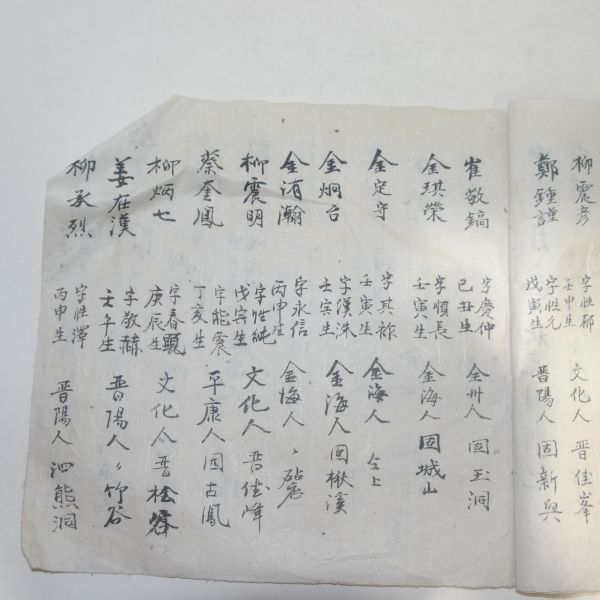 柳震彦 字性郁 壬申生 文化人 晋佳峯
鄭鍾謹 字性元 戊寅生 晋陽人 固新興
崔敬鎬 字慶仲 己丑生 全州人 固玉洞
金琪榮 字順長 壬寅生 金海人 固城山
金定守 字其祿 壬寅生 金海人 仝上
金炯台 字漢洙 壬寅生 金海人 固楸溪
金洧瀚 字永信 丙申生 金海人 〻
柳震明 字性純 戊寅生 文化人 晋佳峰
蔡奎鳳 字能震 丁亥生 平康人 固古鳳
柳炳七 字春 庚辰生 文化人 晋桂峰
姜在漢 字敬赫 壬午生 晋陽人 〻竹谷
柳承烈 字性澤 丙申生 晋陽人 泗熊洞